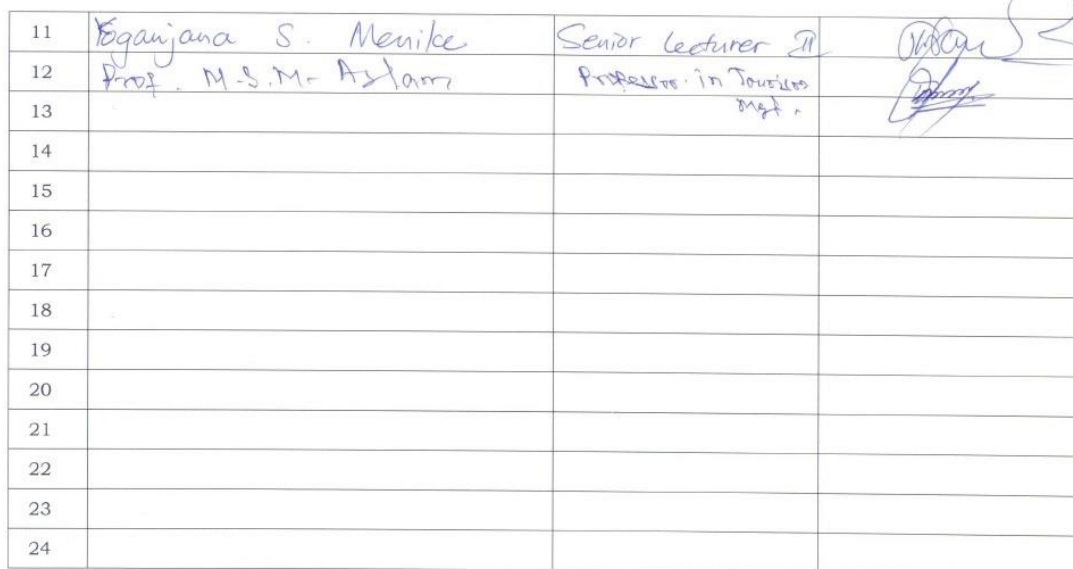 11 Yoganjana S. Menike Senior Lecturer II
12 Prof. M.S.M. Aslam Professor in Tourism
13 Mgt.
14
15
16
17
18
19
20
21
22
23
24